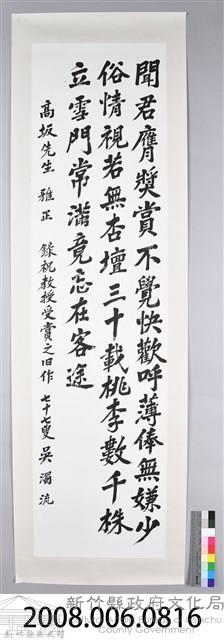 聞君膺獎賞不覺快歡呼薄俸無嫌少
俗情視若無杏壇三十載桃李數千株
立雪門常滿竟忘在客途
高坂先生 雅正 錄祝教授受賞之旧作 七十七叟 吳濁流
新竹縣政府文化局
County Government
2008.006.0816